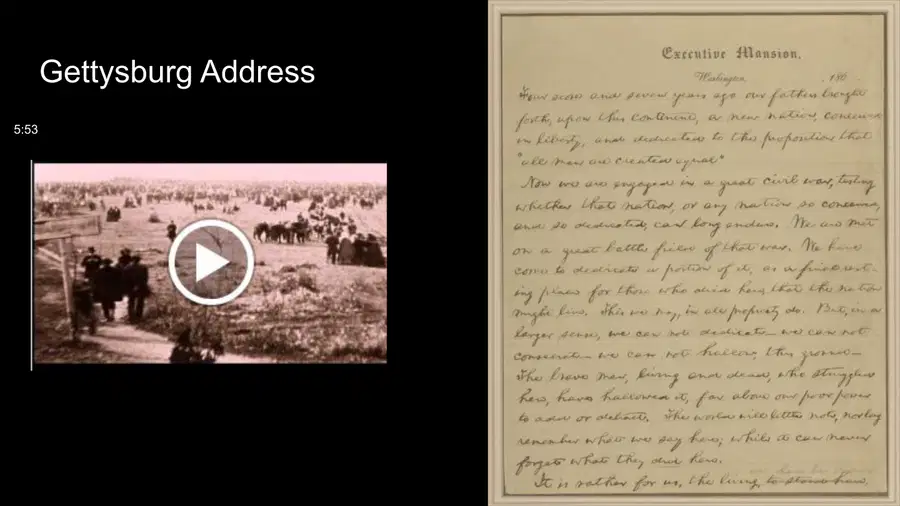 Gettysburg Address
5:53
Executive Mansion,
Washington, 186
Four score and seven years ago our fathers brought
forth, upon this continent, a new nation, conceived
in liberty, and dedicated to the proposition that
"all men are created equal"
Now we are engaged in a great civil war, testing
whether that nation, or any nation so conceived,
and so dedicated, can long endure. We are met
on a great battle field of that war. We have
come to dedicate a portion of it, as a final rest-
ing place for those who died here, that the nation
might live. This we may, in all propriety do. But, in a
larger sense, we can not dedicate— we can not
consecrate— we can not hallow, this ground—
The brave men, living and dead, who struggled
here, have hallowed it, far above our poor power
to add or detract. The world will little note, nor long
remember what we say here; while it can never
forget what they did here.
It is rather for us, the living, to stand here,